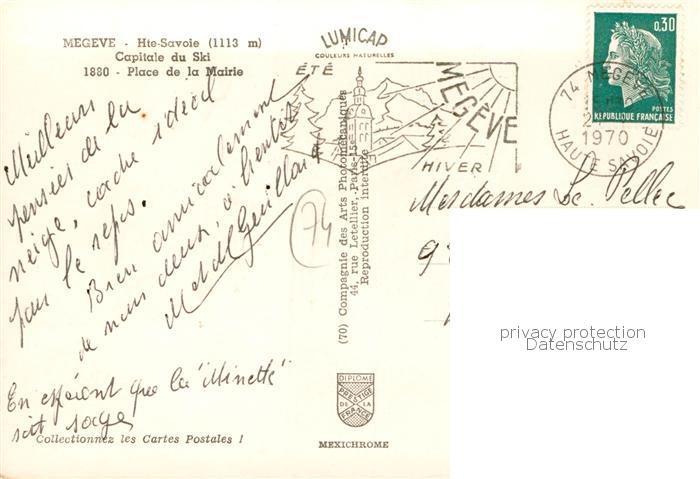 MEGEVE - Hte-Savoie (1113 m)
Capitale du Ski
1880 - Place de la Mairie
LUMICAP
COULEURS NATURELLES
ÉTÉ
MEGÈVE
HIVER
0,30
POSTES
REPUBLIQUE FRANÇAISE
74 MEGEVE
1970
HAUTE SAVOIE
Meilleures
pensées de la
neige, cadre idéal
pour le repos.
Bien amicalement
de nous deux, à bientôt
M et M Guillou
En espérant que la "Minette"
soit sage
(74)
(70) Compagnie des Arts Photomécaniques
44, rue Letellier, Paris-15e
Reproduction interdite
Mesdames Le Pellec
9
privacy protection
Datenschutz
DIPLOME
PRESTIGE
DE LA
FRANCE
Collectionnez les Cartes Postales !
MEXICHROME